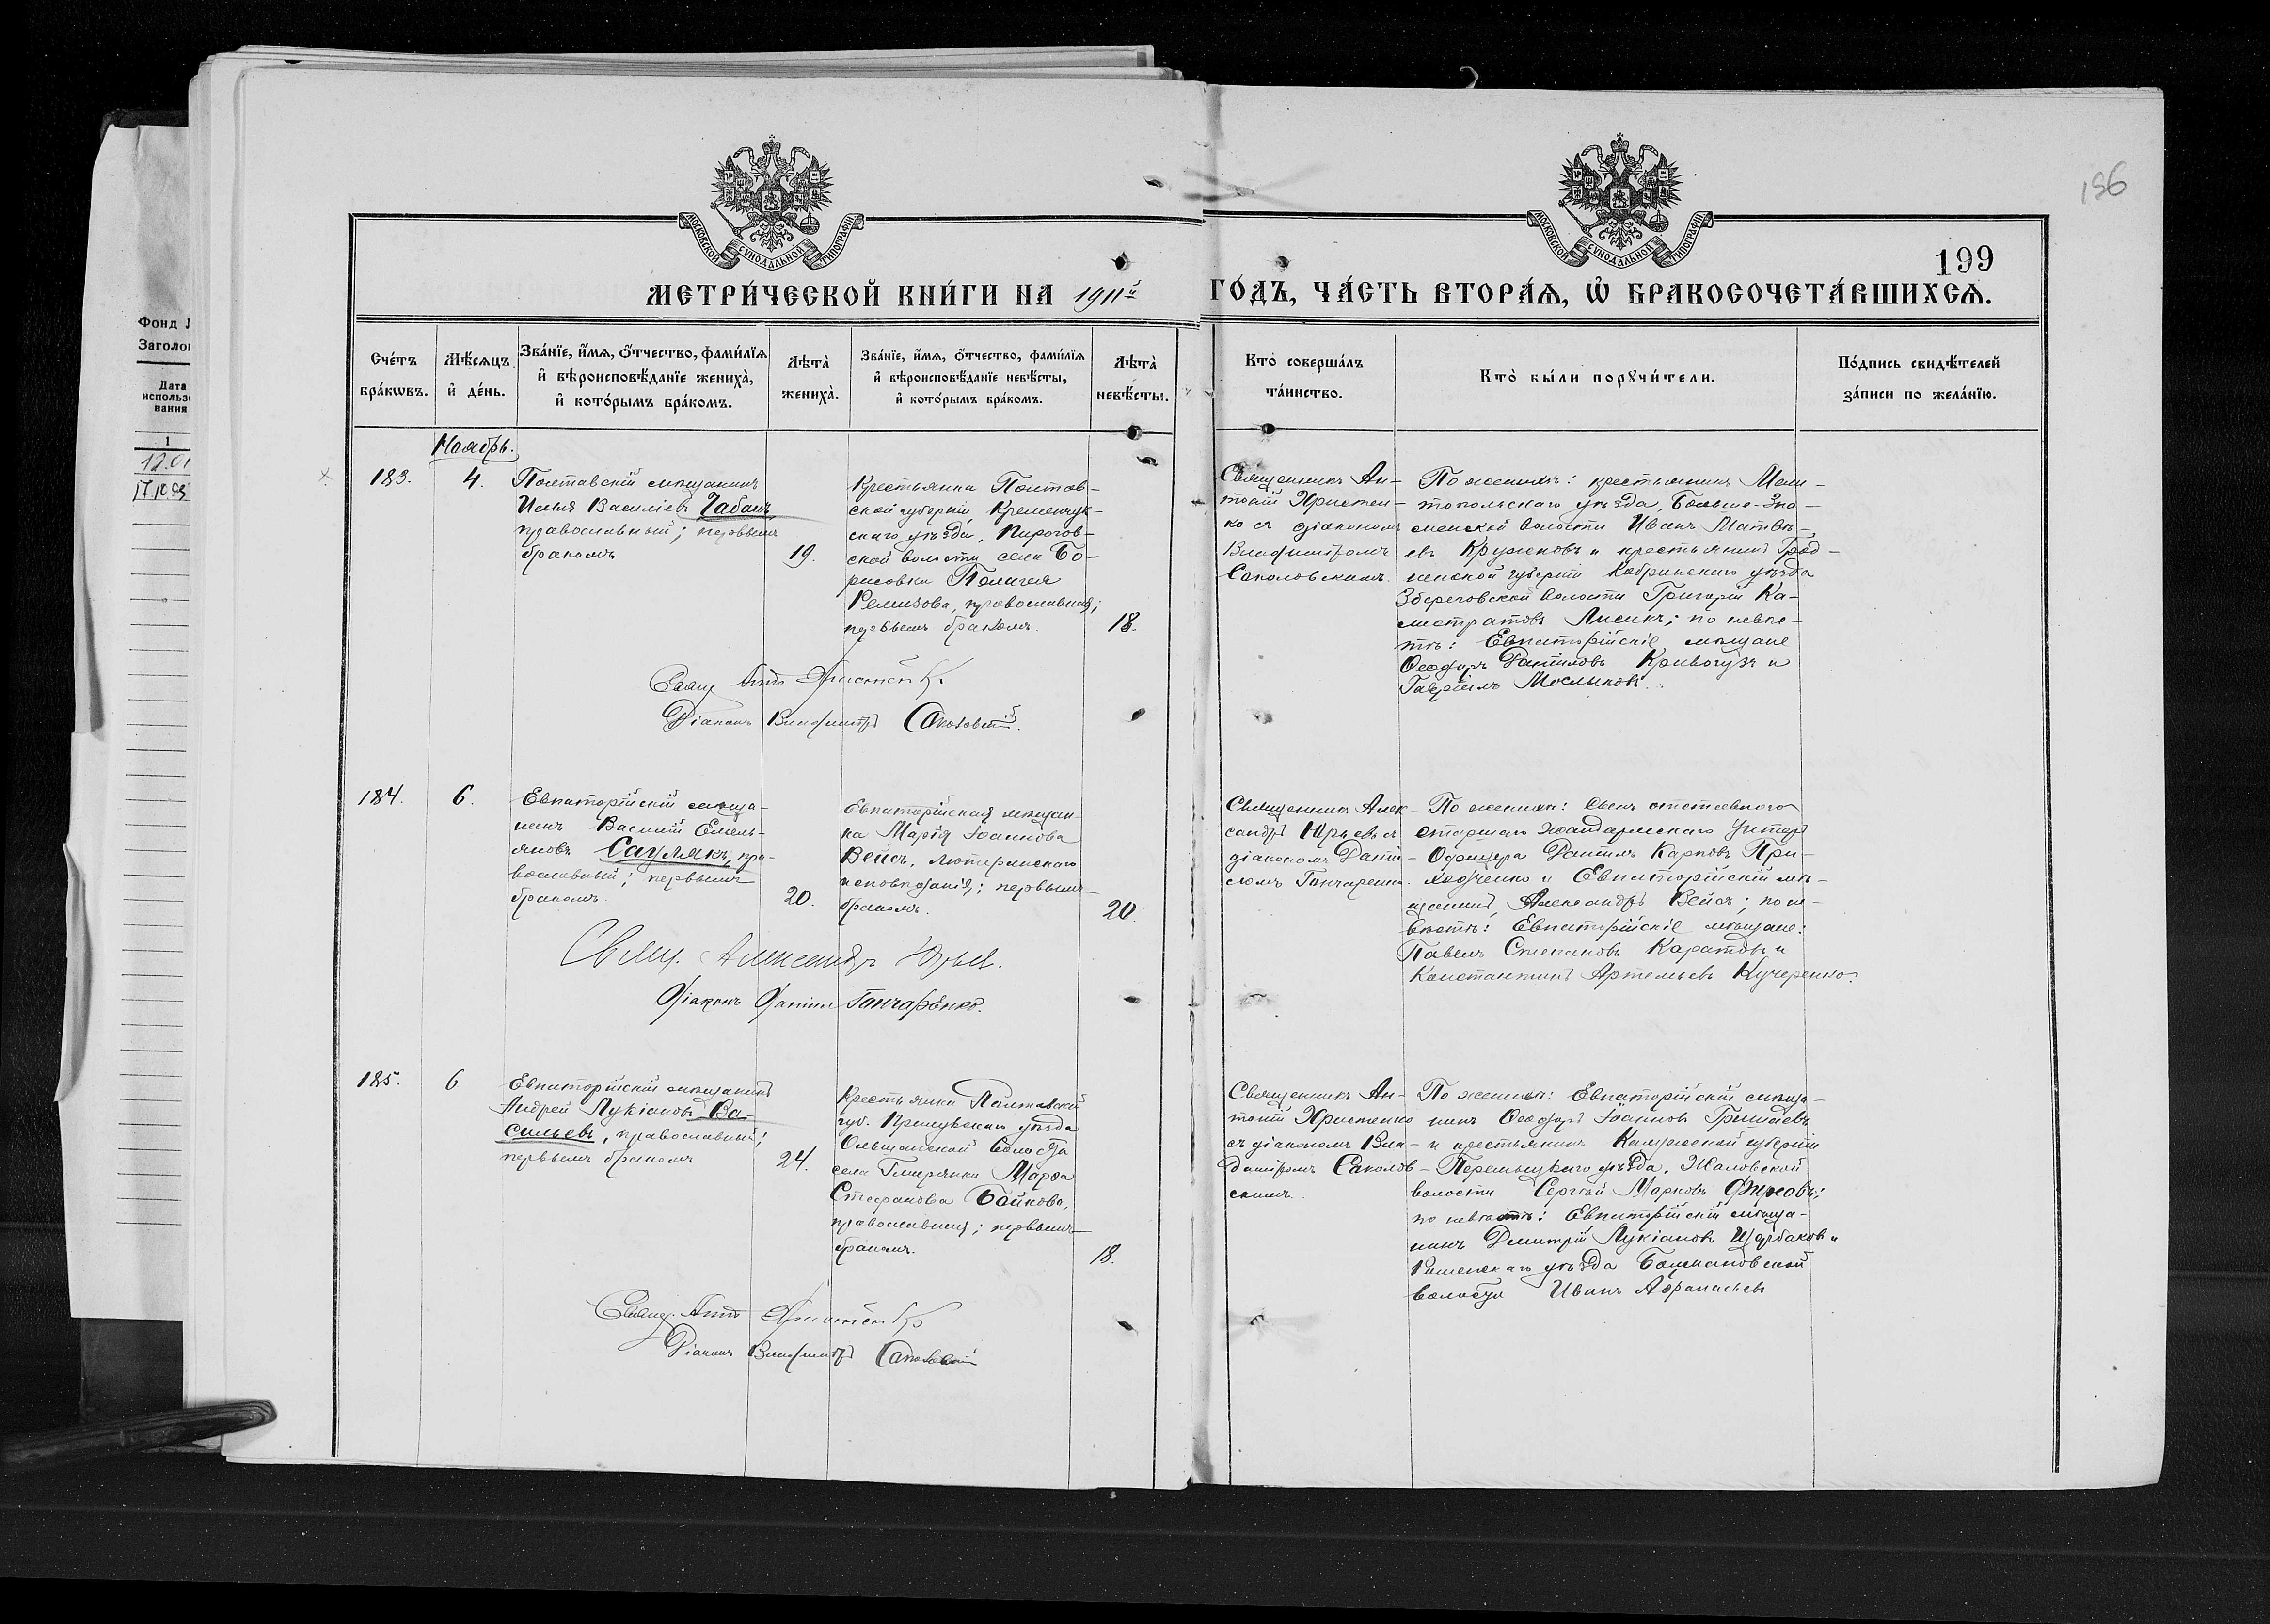 196
199
МОСКОВСКОЙ СѴНОДАЛЬНОЙ ТИПОГРАФІИ
МОСКОВСКОЙ СѴНОДАЛЬНОЙ ТИПОГРАФІИ
МЕТРИ́ЧЕСКОЙ КНИ́ГИ НА 1911й ГО́ДЪ, ЧА́СТЬ ВТОРА́Ѧ, Ѡ҆ БРАКОСОЧЕТА́ВШИХСѦ.
Фонд
Дата
1
12.01
Сче́тъ
бра́кѡвъ.
Мѣ́сѧцъ
и҆ де́нь.
Зва́нїе, и҆́мѧ, ѻ҆́тчество, фами́лїѧ
и҆ вѣроисповѣ́данїе жениха̀,
и҆ кото́рымъ бра́комъ.
Лѣта̀
жениха̀.
Зва́нїе, и҆́мѧ, ѻ҆́тчество, фами́лїѧ
и҆ вѣроисповѣ́данїе невѣ́сты,
и҆ кото́рымъ бра́комъ.
Лѣта̀
невѣ́сты.
Кто̀ соверша́лъ
та́инство.
Кто̀ бы́ли порꙋчи́тели.
По́дпись свидѣ́телей
за́писи по жела́нїю.
Ноябрь.
183.
4.
Полтавскій мѣщанинъ
Илья Василіевъ Чабанъ
православный; первымъ
бракомъ
19.
Крестьянка Полтав-
ской губерніи, Кременчуг-
скаго уѣзда, Пирогов-
ской волости села Бо-
рисовки
Ремизова, православная;
первымъ бракомъ.
18.
Священникъ Ан-
тоній Христен-
ко съ діакономъ
Владиміромъ
Соколовскимъ.
По женихѣ: крестьянинъ Мели-
топольскаго уѣзда, Больше-Зна-
менской волости Иванъ Матвѣ-
евъ Кружковъ и крестьянинъ Грод-
ненской губерніи Кобринскаго уѣзда
Збероговской волости Григорій Ка-
листратовъ Лисикъ; по невѣс-
тѣ: Евпаторійскіе мѣщане
Ѳеодоръ Даніиловъ Кривогузъ и
Гавріилъ
Свящ Антоній Христенко
Діаконъ Владиміръ Соколовскій.
184.
6.
Евпаторійскій мѣща-
нинъ Василій Емель-
яновъ Саулякъ, пра-
вославный; первымъ
бракомъ.
20.
Евпаторійская мѣщан-
ка Марія Іоаннова
Вейсъ, лютеранскаго
исповѣданія; первымъ
бракомъ.
20.
Священникъ Алек-
сандръ Юрьевъ съ
діакономъ Даніи-
ломъ Гончаренко.
По женихѣ: сынъ отставного
старшаго жандармскаго Унтеръ
Офицера Даніилъ Карповъ При-
ходченко и Евпаторійскій мѣ-
щанинъ Александръ Вейсъ; по не-
вѣстѣ: Евпаторійскіе мѣщане:
Павелъ Степановъ Каратовъ и
Константинъ Артемьевъ Кучеренко.
Свящ. Александръ Юрьев.
Діаконъ Даніилъ Гончаренко.
185.
6
Евпаторійскій мѣщанинъ
Андрей Лукіановъ Ва-
сильевъ, православный;
первымъ бракомъ
24.
Крестьянка Полтавской
губ. Прилукскаго уѣзда
Ольшанской волости
села Гмирянки Марѳа
Стефанова Бойкова,
православная; первымъ
бракомъ.
18.
Священникъ Ан-
тоній Христенко
съ діакономъ Вла-
диміромъ Соколов-
скимъ.
По женихѣ: Евпаторійскій мѣща-
нинъ Ѳеодоръ Іоанновъ Гришаевъ
и крестьянинъ Калужской губерніи
Перемышльскаго уѣзда, Жаловской
волости Сергѣй Марковъ Фирсовъ;
по невѣстѣ: Евпаторійскій мѣща-
нинъ Дмитрій Лукіановъ Щербаковъ и
уѣзда
волости Иванъ Аѳанасьевъ
Свящ. Антоній Христенко
Діаконъ Владиміръ Соколовскій